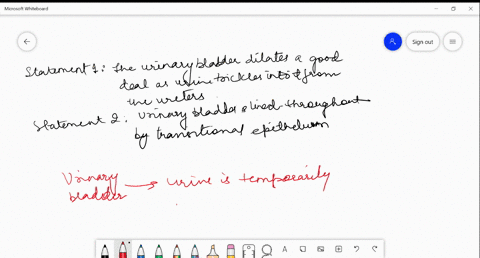 Microsoft Whiteboard
Sign out
Statement 1: The urinary bladder dilates a good
deal as urine trickles into it from
the ureters
Statement 2. Urinary bladder is lined throughout
by transitional epithelium
Urinary → urine is temporarily
bladder